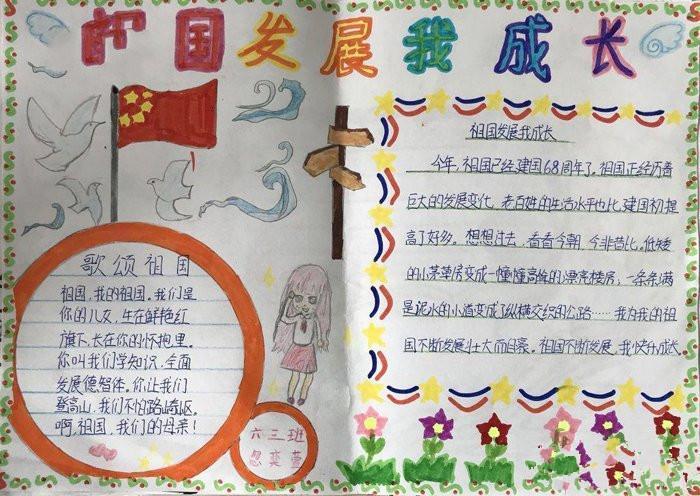 祖国发展我成长
歌颂祖国
祖国,我的祖国。我们是
你的儿女,生在鲜艳红
旗下,长在你的怀抱里。
你叫我们学知识,全面
发展德智体。你让我们
登高山,我们不怕路崎岖。
啊,祖国,我们的母亲!
六三班
祖国发展我成长
今年,祖国已经建国68周年了,祖国正经历着
巨大的发展变化,老百姓的生活水平也比建国初提
高了好多。想想过去,看看今朝,今非昔比。低矮
的小茅草房变成一幢幢高耸的小漂亮楼房;一条条满
是泥水的小道变成了纵横交织的公路……我为我的祖
国不断发展壮大而自豪。祖国不断发展,我快乐成长